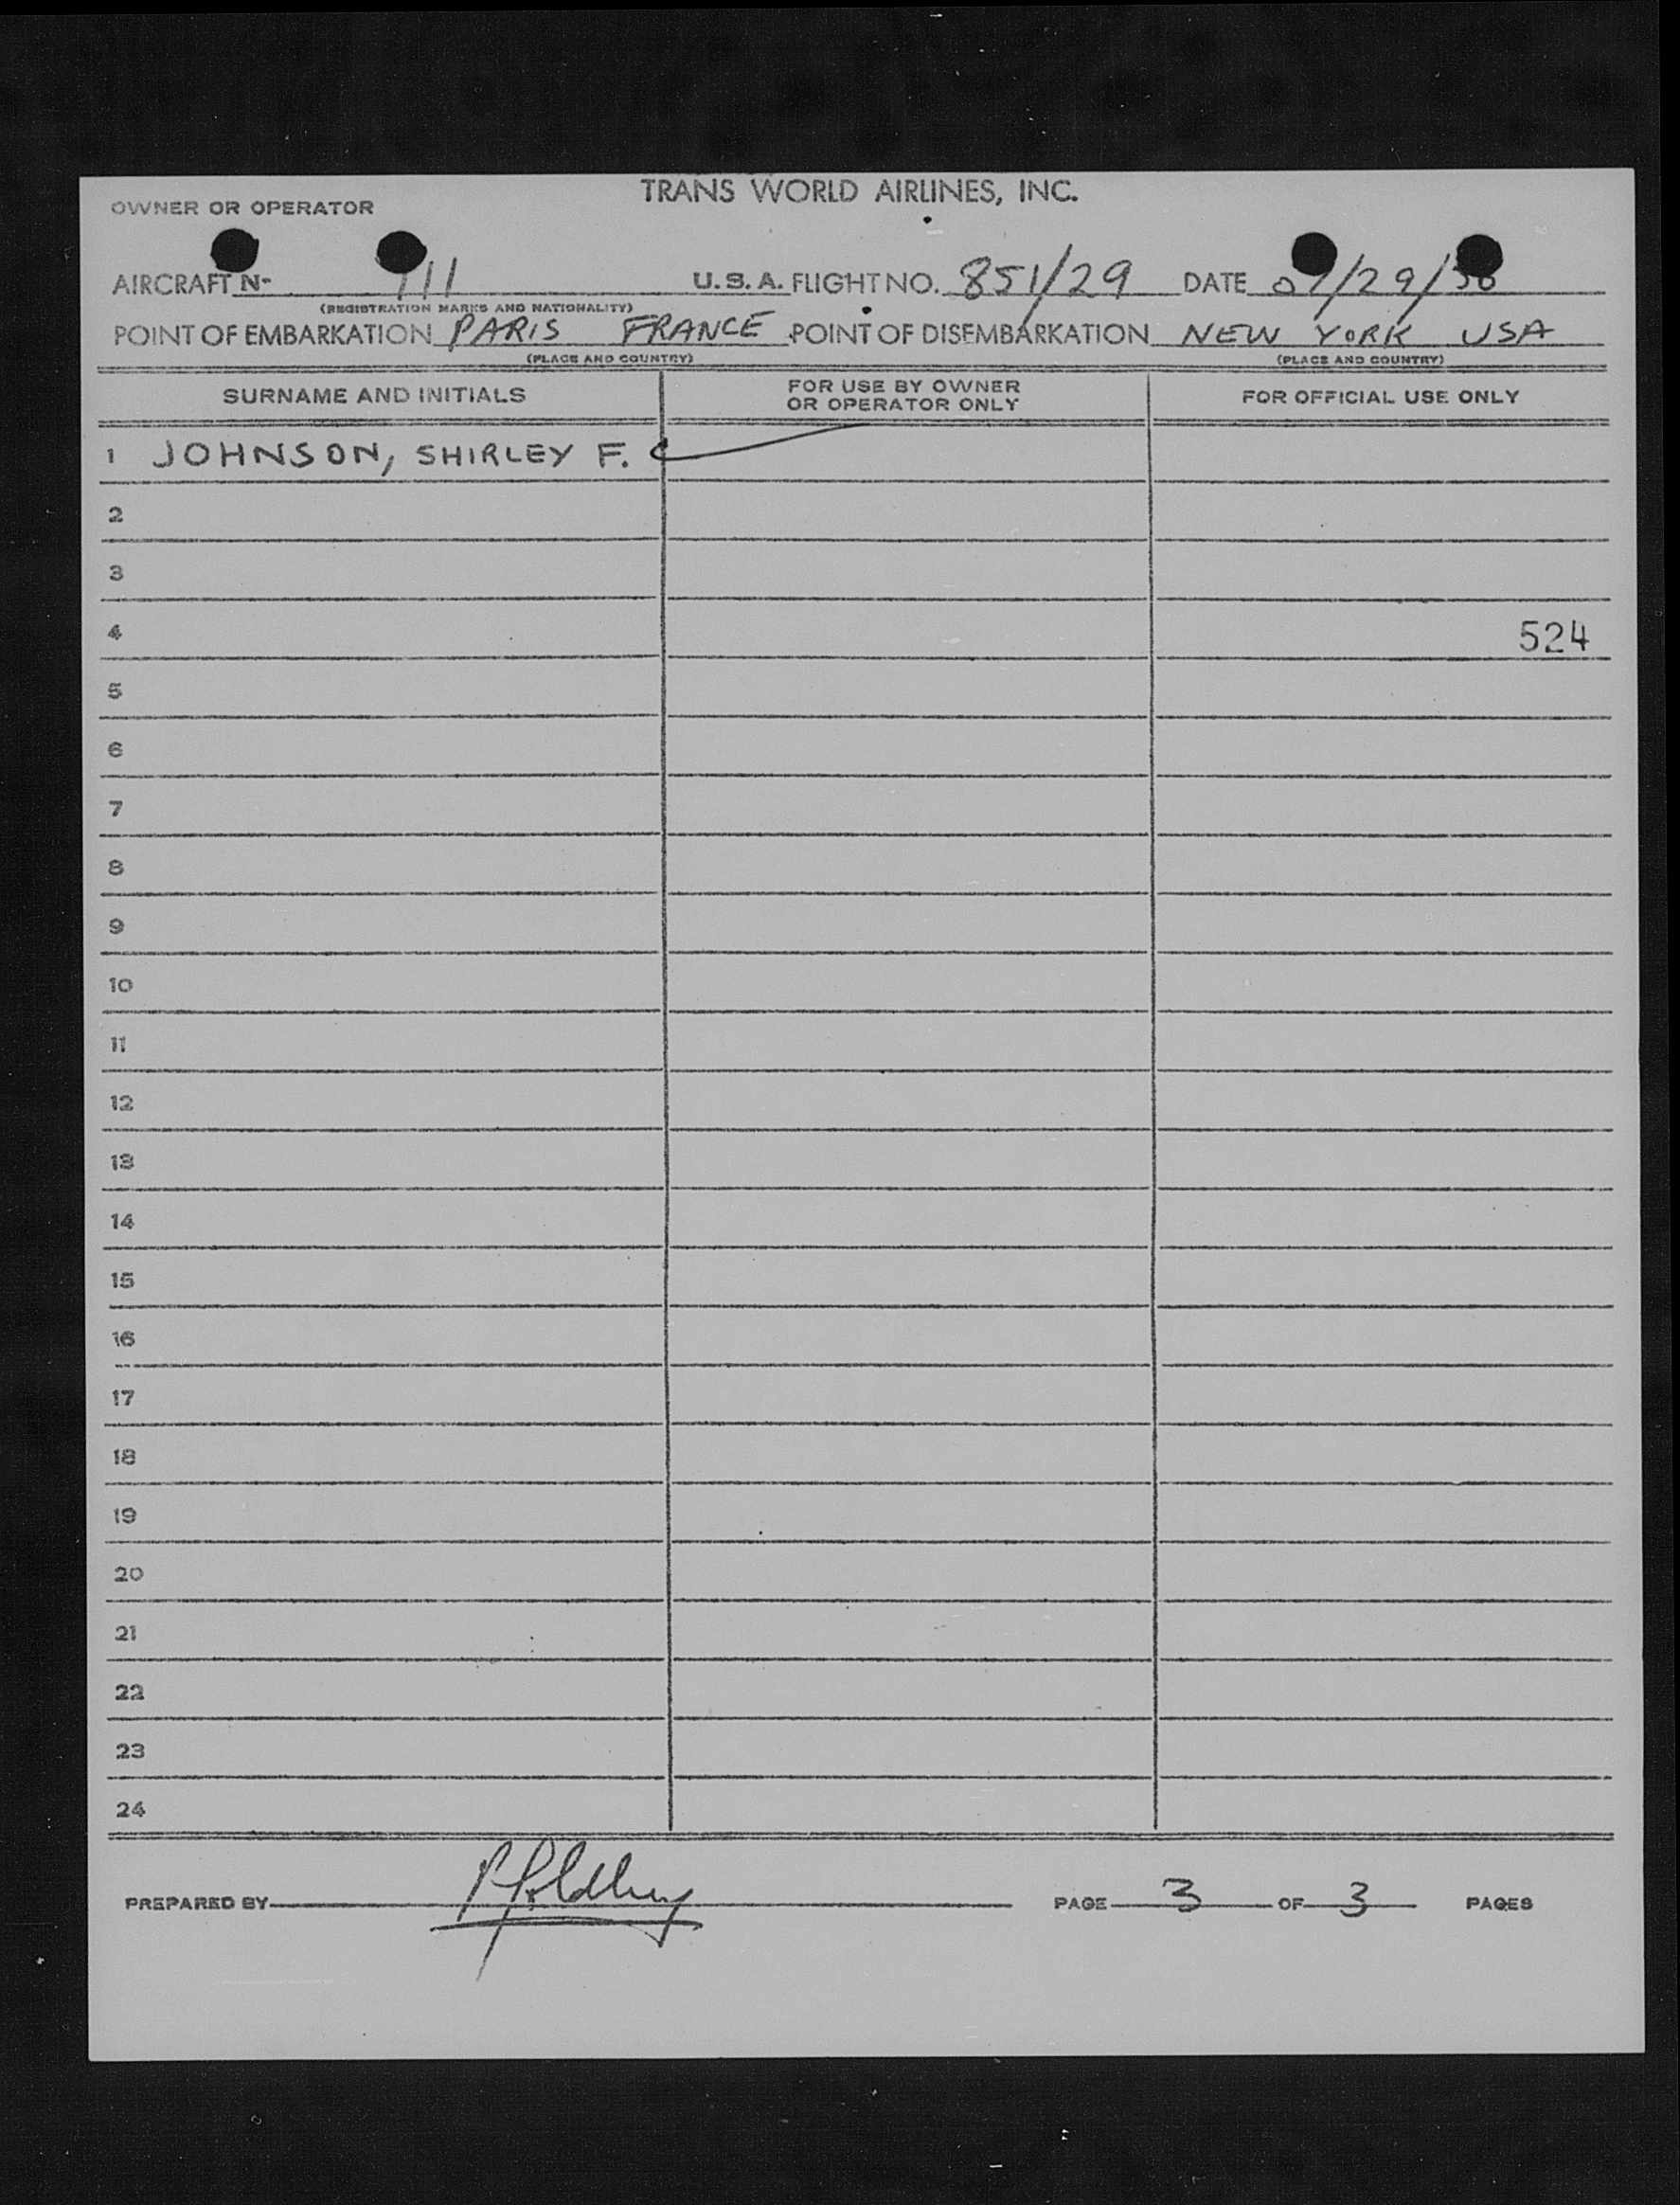 TRANS WORLD AIRLINES, INC.
OWNER OR OPERATOR
AIRCRAFT N- U.S.A. FLIGHT NO. 851/29 DATE
(REGISTRATION MARKS AND NATIONALITY)
POINT OF EMBARKATION PARIS FRANCE POINT OF DISEMBARKATION NEW YORK USA
(PLACE AND COUNTRY) (PLACE AND COUNTRY)
SURNAME AND INITIALS FOR USE BY OWNER OR OPERATOR ONLY FOR OFFICIAL USE ONLY
1 JOHNSON, SHIRLEY F.
2
3
4 524
5
6
7
8
9
10
11
12
13
14
15
16
17
18
19
20
21
22
23
24
PREPARED BY PAGE 3 OF 3 PAGES